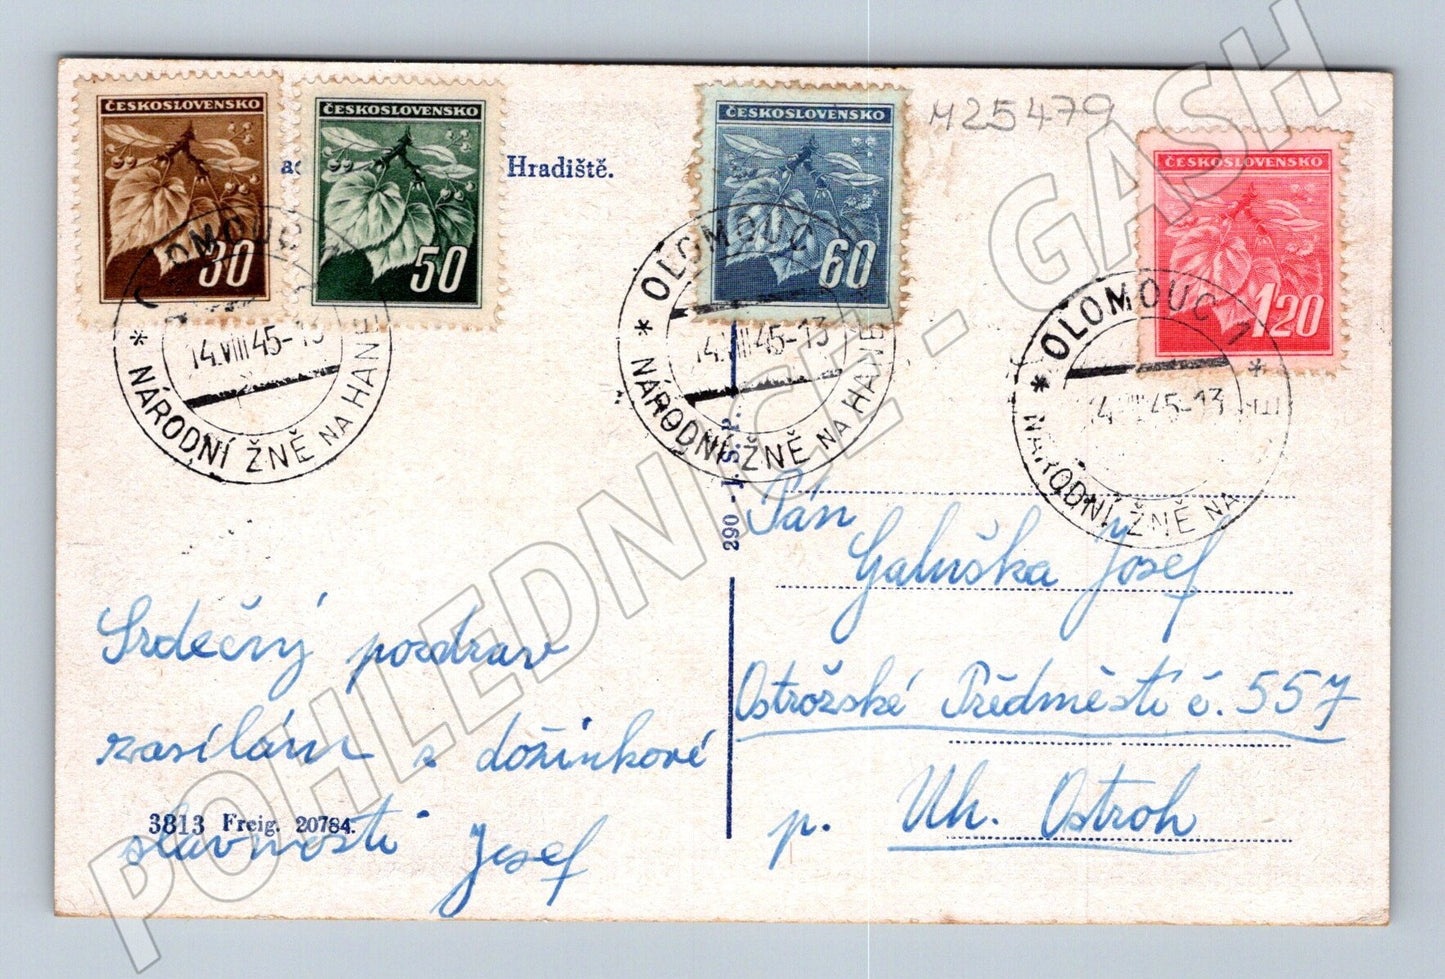 ČESKOSLOVENSKO
30
ČESKOSLOVENSKO
50
ČESKOSLOVENSKO
60
M25479
ČESKOSLOVENSKO
1.20
Hradiště.
OLOMOUC 1
14.VIII.45-13
* NÁRODNÍ ŽNĚ NA HANÉ
* OLOMOUC
14.VIII.45-13
NÁRODNÍ ŽNĚ NA HANÉ
* OLOMOUC 1 *
14.VIII.45-13
NÁRODNÍ ŽNĚ NA
290 - I. S. P.
Pán
Galuška Josef
Ostrožské Předměstí č. 557
p. Uh. Ostroh
Srdečný pozdrav
zasílám s dožinkové
slavnosti Josef
3813 Freig. 20784.
POHLEDNICE - GASH